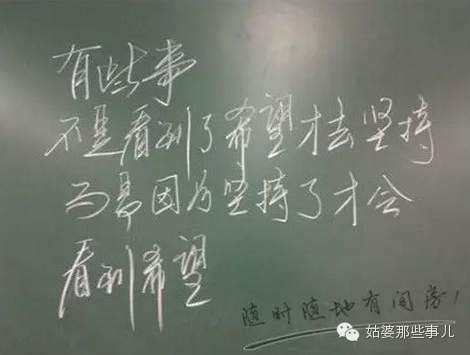 有些事
不是看到了希望才去坚持
而是因为坚持了才会
看到希望
随时随地有间房!
姑婆那些事儿